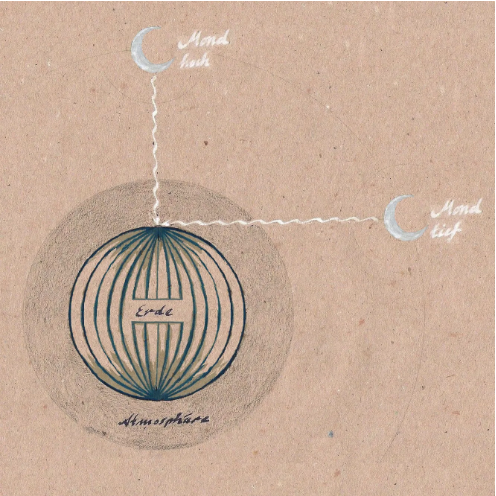 Mond
hoch
Mond
tief
Erde
Atmosphäre